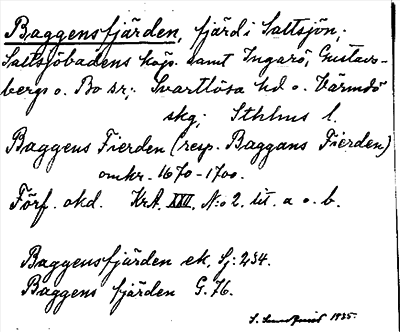 Baggensfjärden, fjärd i Saltsjön,
Saltsjöbadens köp. samt Ingarö, Gustavs-
bergs o. Bo sr; Svartlösa hd o. Värmdö
skg; Sthlms l.
Baggens Fierden (resp. Baggans Fierden)
omkr. 1670-1700.
Förf. okd. KrA. XXV. N:o 2. lit. a o. b.
Baggensfjärden ek. Sj: 234.
Baggens fjärden G. 76.
S. 1935.